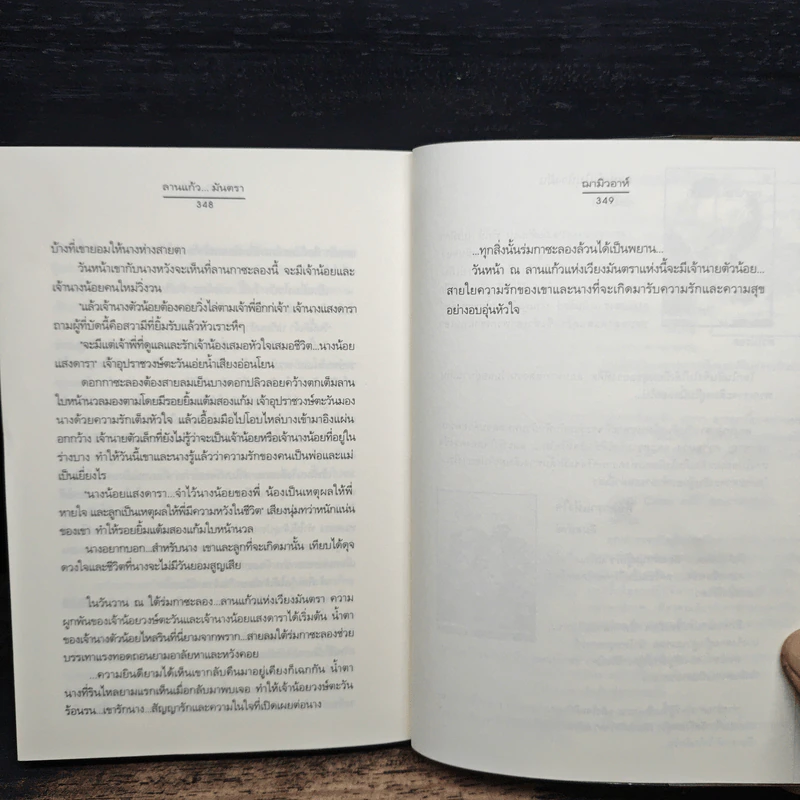 ลานแก้ว... มันตรา
348
บ้างที่เขายอมให้นางห่างสายตา
วันหน้าเขากับนางหวังจะเห็นที่ลานกาซะลองนี้ จะมีเจ้าน้อยและ
เจ้านางน้อยคนใหม่วิ่งวน
"แล้วเจ้านางตัวน้อยต้องคอยวิ่งไล่ตามเจ้าพี่อีกก่เจ้า" เจ้านางแสงดารา
ถามผู้ที่บัดนี้คือสวามีที่ยิ้มรับแล้วหัวเราะหึๆ
"จะมีแต่เจ้าพี่ที่ดูแลและรักเจ้าน้องเสมอหัวใจเสมอชีวิต...นางน้อย
แสงดารา" เจ้าอุปราชวงษ์ตะวันเอ่ยน้ำเสียงอ่อนโยน
ดอกกาซะลองต้องสายลมเย็นบางดอกปลิวลอยคว้างตกเต็มลาน
ใบหน้านวลมองตามโดยมีรอยยิ้มแต้มสองแก้ม เจ้าอุปราชวงษ์ตะวันมอง
นางด้วยความรักเต็มหัวใจ แล้วเอื้อมมือไปโอบไหล่บางเข้ามาอิงแผ่น
อกกว้าง เจ้านายตัวเล็กที่ยังไม่รู้ว่าจะเป็นเจ้าน้อยหรือเจ้านางน้อยที่อยู่ใน
ร่างบาง ทำให้วันนี้เขาและนางรู้แล้วว่าความรักของคนเป็นพ่อและแม่
เป็นเยี่ยงไร
"นางน้อยแสงดารา...จำไว้นางน้อยของพี่ น้องเป็นเหตุผลให้พี่
หายใจ และลูกเป็นเหตุผลให้พี่มีความหวังในชีวิต" เสียงนุ่มทว่าหนักแน่น
ของเขา ทำให้รอยยิ้มแต้มสองแก้มใบหน้านวล
นางอยากบอก...สำหรับนาง เขาและลูกที่จะเกิดมานั้น เทียบได้ดุจ
ดวงใจและชีวิตที่นางจะไม่มีวันยอมสูญเสีย
ในวันวาน ณ ใต้ร่มกาซะลอง...ลานแก้วแห่งเวียงมันตรา ความ
ผูกพันของเจ้าน้อยวงษ์ตะวันและเจ้านางน้อยแสงดาราได้เริ่มต้น น้ำตา
ของเจ้านางตัวน้อยไหลรินที่นี่ยามจากพราก...สายลมใต้ร่มกาซะลองช่วย
บรรเทาแรงทอดถอนยามอาลัยหาและหวังคอย
...ความยินดียามได้เห็นเขากลับคืนมาอยู่เคียงก็เฉกกัน น้ำตา
นางที่รินไหลยามแรกเห็นเมื่อกลับมาพบเจอ ทำให้เจ้าน้อยวงษ์ตะวัน
ร้อนรน...เขารักนาง...สัญญารักและความในใจที่เปิดเผยต่อนาง
ฌามิวอาห์
349
...ทุกสิ่งนั้นร่มกาซะลองล้วนได้เป็นพยาน...
วันหน้า ณ ลานแก้วแห่งเวียงมันตราแห่งนี้จะมีเจ้านายตัวน้อย...
สายใยความรักของเขาและนางที่จะเกิดมารับความรักและความสุข
อย่างอบอุ่นหัวใจ